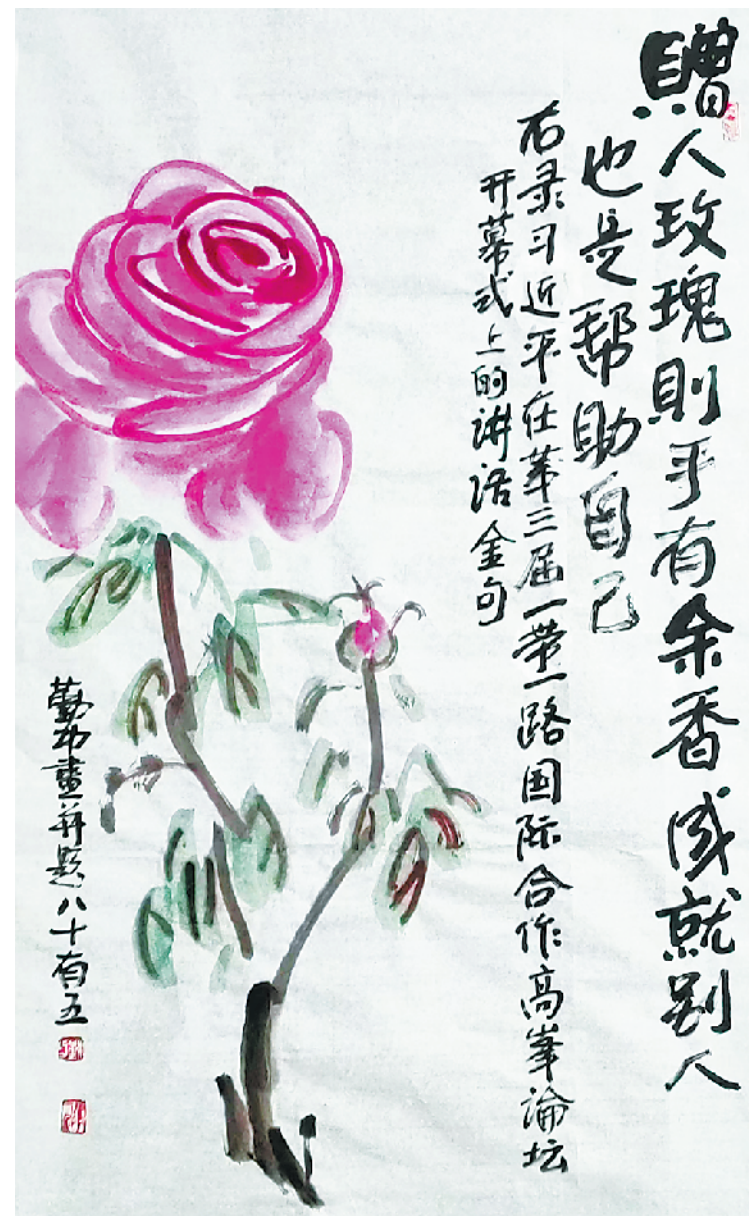 贈人玫瑰則手有余香成就别人
也是帮助自己
右录习近平在第三届一带一路国际合作高峯論坛
开幕式上的讲话金句
勤布畫并题八十有五